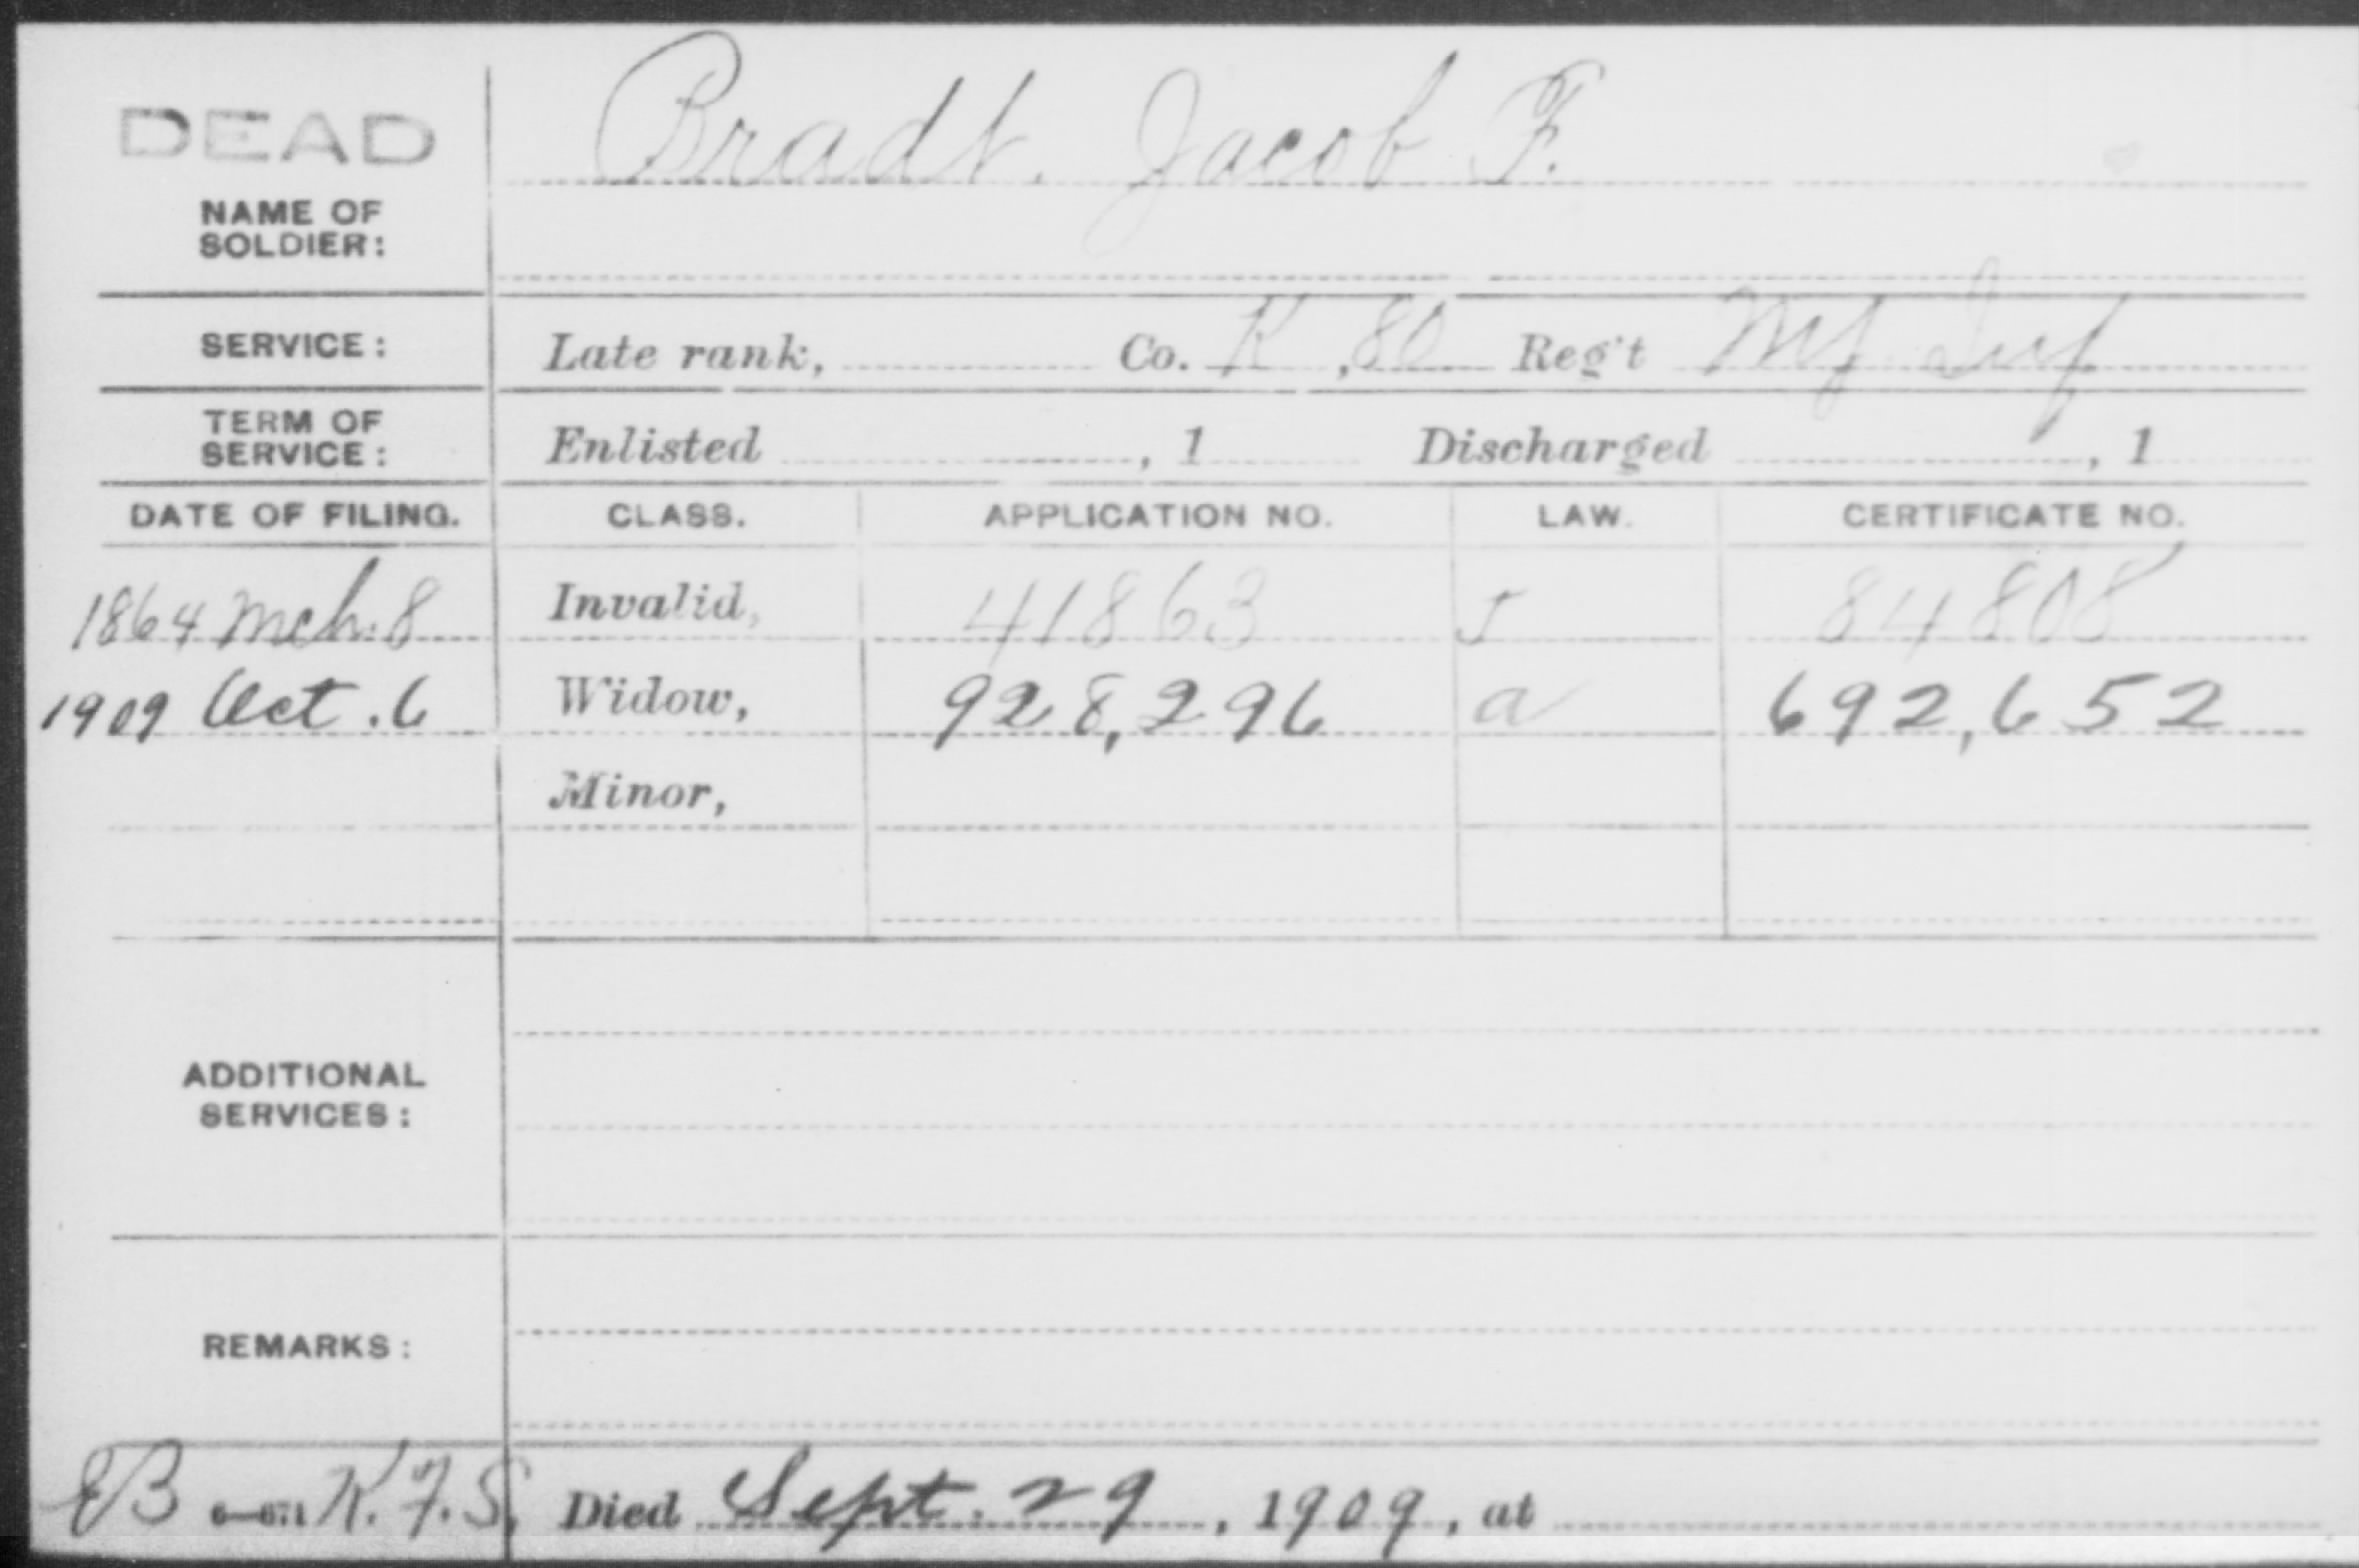 DEAD
Bradt. Jacob F.
NAME OF
SOLDIER:
SERVICE: Late rank, Co. K, 80 Reg't NY Inf
TERM OF
SERVICE: Enlisted , 1 Discharged , 1
DATE OF FILING. CLASS. APPLICATION NO. LAW. CERTIFICATE NO.
1864 Mch. 8 Invalid, 41863 84808
1909 Oct. 6 Widow, 928,296 a 692,652
Minor,
ADDITIONAL
SERVICES:
REMARKS:
EB K.F.S. Died Sept. 29, 1909, at